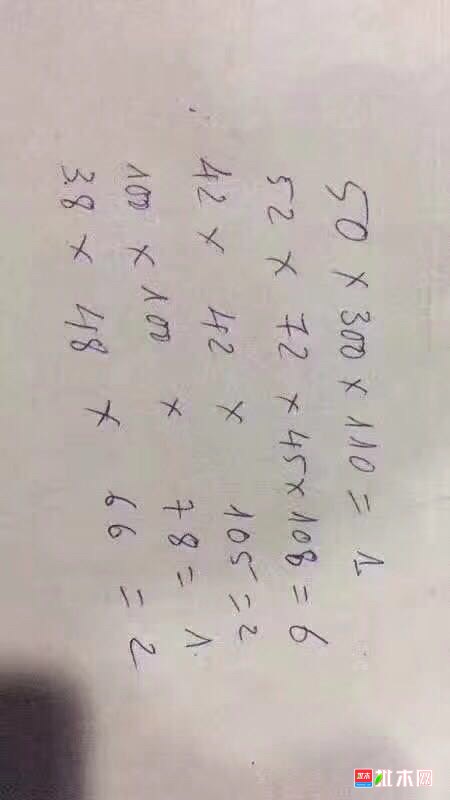 50 × 300 × 110 = 1
52 × 72 × 45 × 108 = 6
42 × 42 × 105 = 2
100 × 100 × 78 = 1.
38 × 48 × 66 = 2
批木网